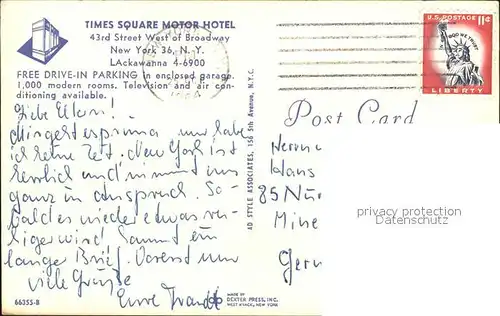 TIMES SQUARE MOTOR HOTEL
43rd Street West of Broadway
New York 36, N. Y.
LAckawanna 4-6900
FREE DRIVE-IN PARKING in enclosed garage.
1,000 modern rooms. Television and air con-
ditioning available.
U.S. POSTAGE 11¢
IN GOD WE TRUST
LIBERTY
Post Card
Liebe Eltern!
Mir geht es prima nur habe
ich keine Zeit. New York ist
herrlich und nimmt uns
ganz in anspruch. So-
bald es wieder etwas ru-
higer wird kommt ein
langer Brief. Vorerst nur
viele Grüße
Herrn
Hans
85 Nür
Ger
privacy protection watermark
AD STYLE ASSOCIATES, 156 5th Avenue, N.Y.C.
66355-B
MADE BY
DEXTER PRESS, INC.
WEST NYACK, NEW YORK